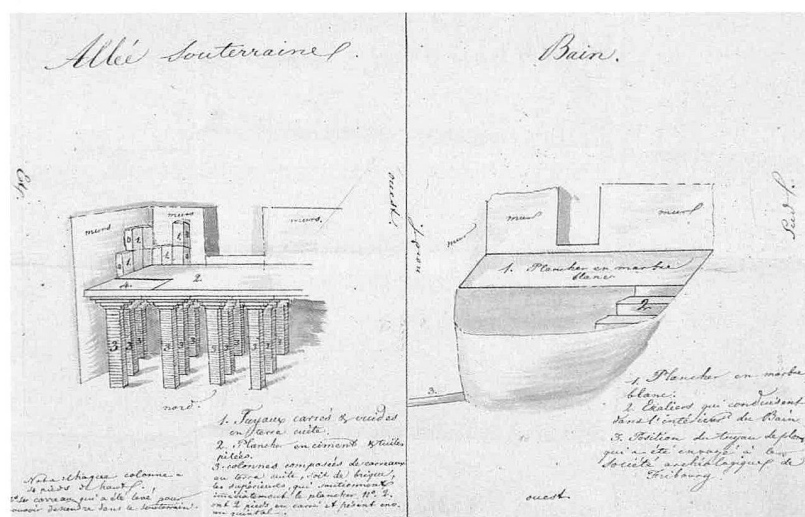 Allée souterraine.
Est
ouest
murs
murs
murs.
1.
1.
1.
2.
4.
3
3
3
3
nord.
1. Tuyaux carrés & vuides
en terre cuite.
2. Plancher en ciment & tuiles
pilées.
3. colonnes composées de carreaux
en terre cuite, soit de briques,
les supérieures, qui soutiennent
immédiatement le plancher, N°. 2.
ont 2 pieds en carré et pèsent env.
un quintal.
Nota. chaque colonne a
4 pieds de haut.
carreau qui a été levé pour
pouvoir descendre dans le souterrain.
Bain.
nord
Sud
murs
murs
murs
1. Plancher en marbre
blanc
2.
3.
1. Plancher en marbre
blanc.
2. Escaliers qui conduisent
dans l'intérieur du Bain
3. Position du tuyau de plomb
qui a été envoyé à la
Société archéologique de
Fribourg
ouest.